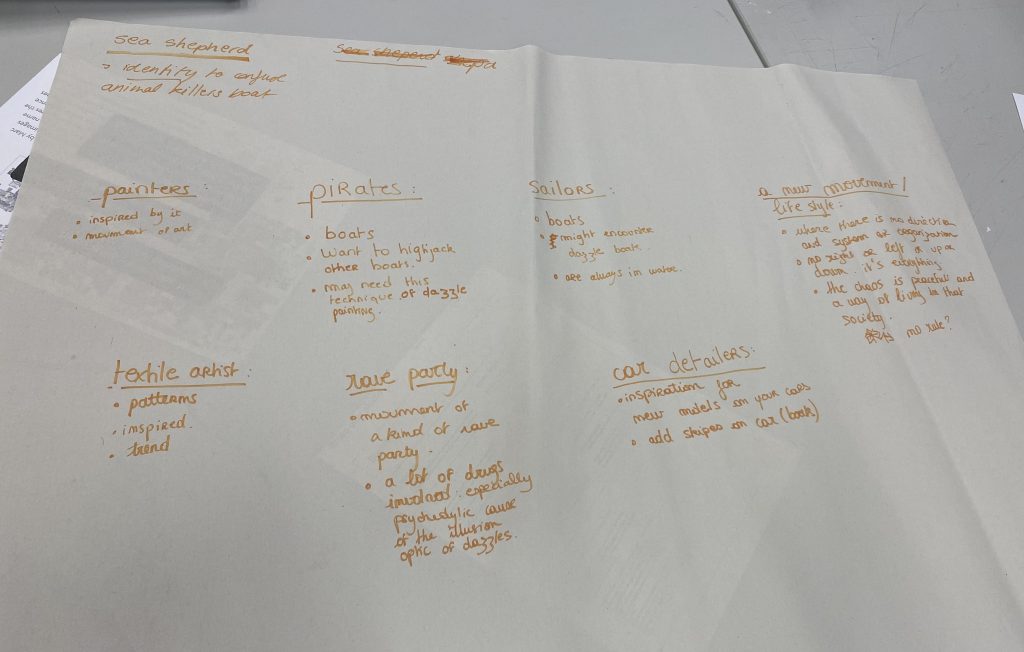 sea shepherd
identity to confuse
animal killers boat
painters :
• inspired by it
• movement of art
piRates :
• boats
• want to highjack
other boats.
• may need this
technique of dazzle
painting.
sailors :
• boats
• might encounter
dazzle boats.
• are always in water.
a new movement /
life style :
• where there is no direction
and system or organization
• no right or left or up or
down. it's everything
• the chaos is peaceful and
a way of living in that
society.
no rule?
textile artist :
• patterns
• inspired.
• trend
rave party :
• mouvment of
a kind of rave
party.
• a lot of drugs
involved : especially
psychestylic cause
of the illusion
optic of dazzles.
car detailers :
• inspiration for
new models on your cars
• add stripes on car (book)
by Marc
name
images